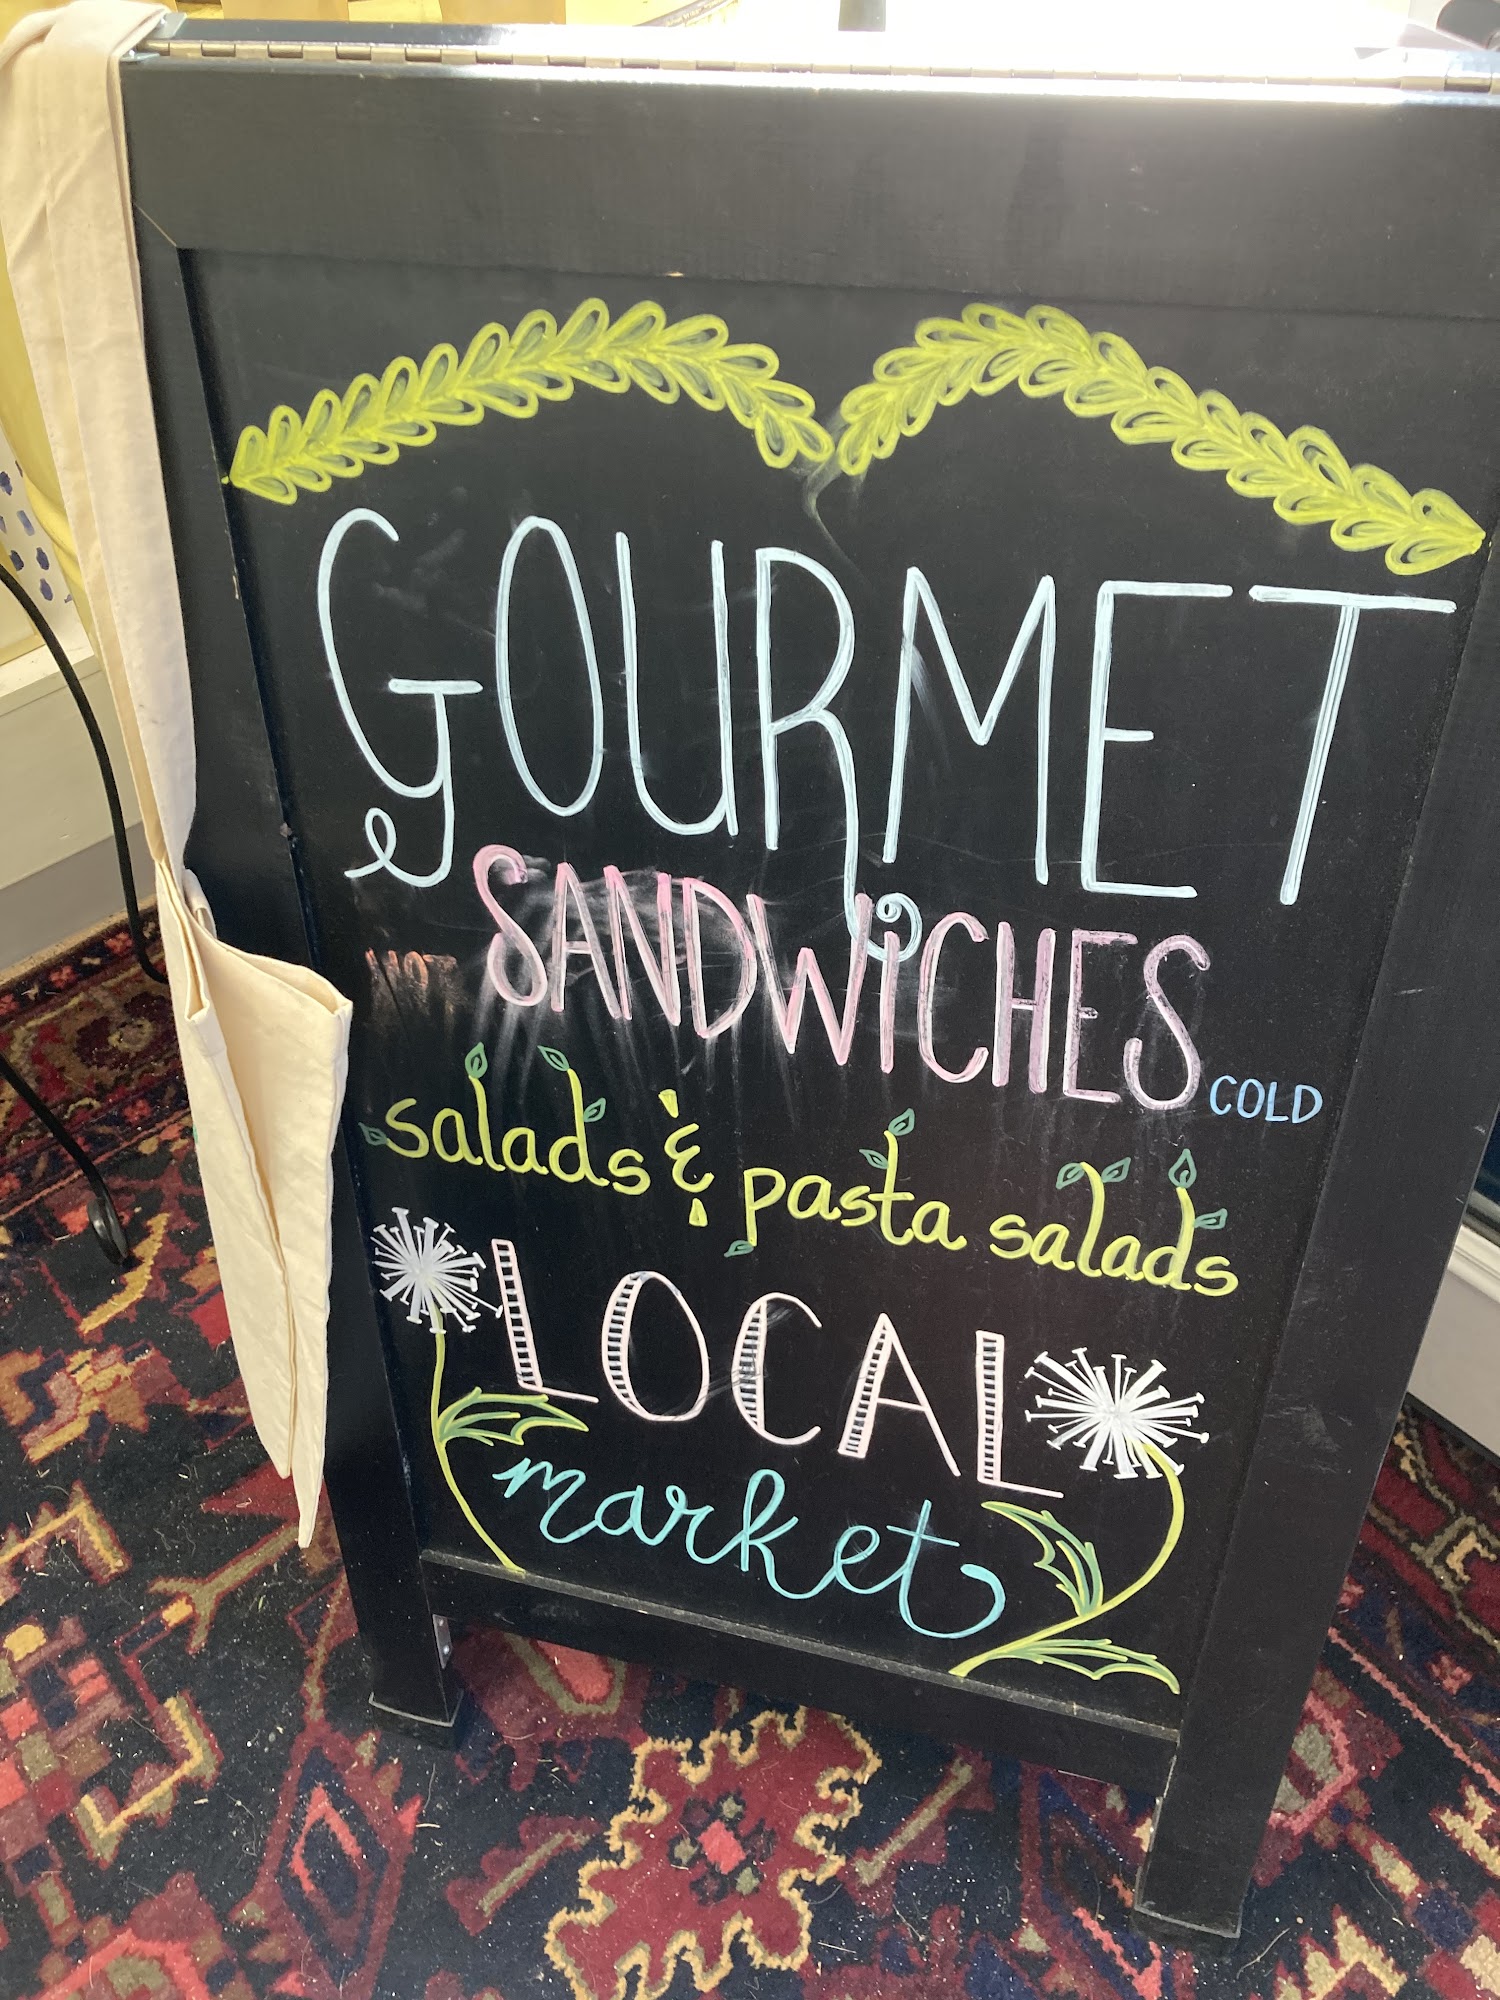 GOURMET
HOT SANDWICHES COLD
salads & pasta salads
LOCAL
market